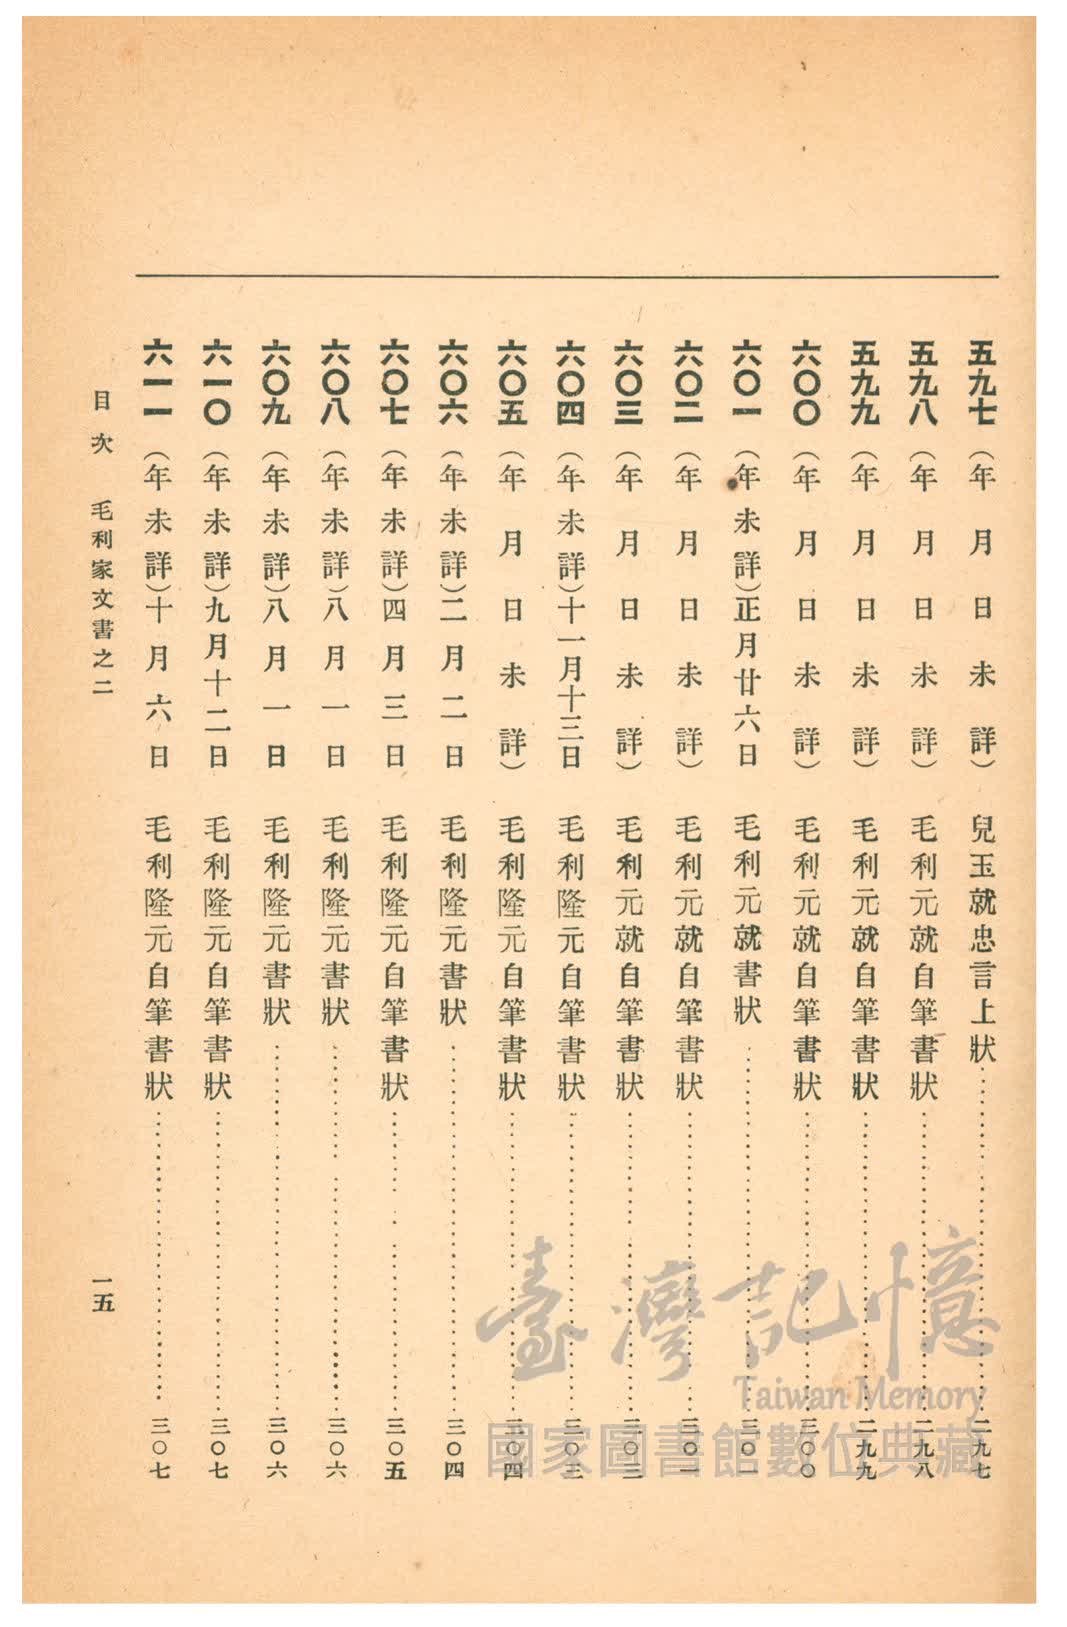 五九七（年月日未詳）兒玉就忠言上狀……二九七
五九八（年月日未詳）毛利元就自筆書狀……二九八
五九九（年月日未詳）毛利元就自筆書狀……二九九
六〇〇（年月日未詳）毛利元就自筆書狀……三〇〇
六〇一（年未詳）正月廿六日　毛利元就書狀……三〇一
六〇二（年月日未詳）毛利元就自筆書狀……三〇一
六〇三（年月日未詳）毛利元就自筆書狀……三〇三
六〇四（年未詳）十一月十三日　毛利隆元自筆書狀……三〇三
六〇五（年月日未詳）毛利隆元自筆書狀……三〇四
六〇六（年未詳）二月二日　毛利隆元書狀……三〇四
六〇七（年未詳）四月三日　毛利隆元自筆書狀……三〇五
六〇八（年未詳）八月一日　毛利隆元書狀……三〇六
六〇九（年未詳）八月一日　毛利隆元書狀……三〇六
六一〇（年未詳）九月十二日　毛利隆元自筆書狀……三〇七
六一一（年未詳）十月六日　毛利隆元自筆書狀……三〇七
目次　毛利家文書之二　一五
臺灣記憶
Taiwan Memory
國家圖書館數位典藏